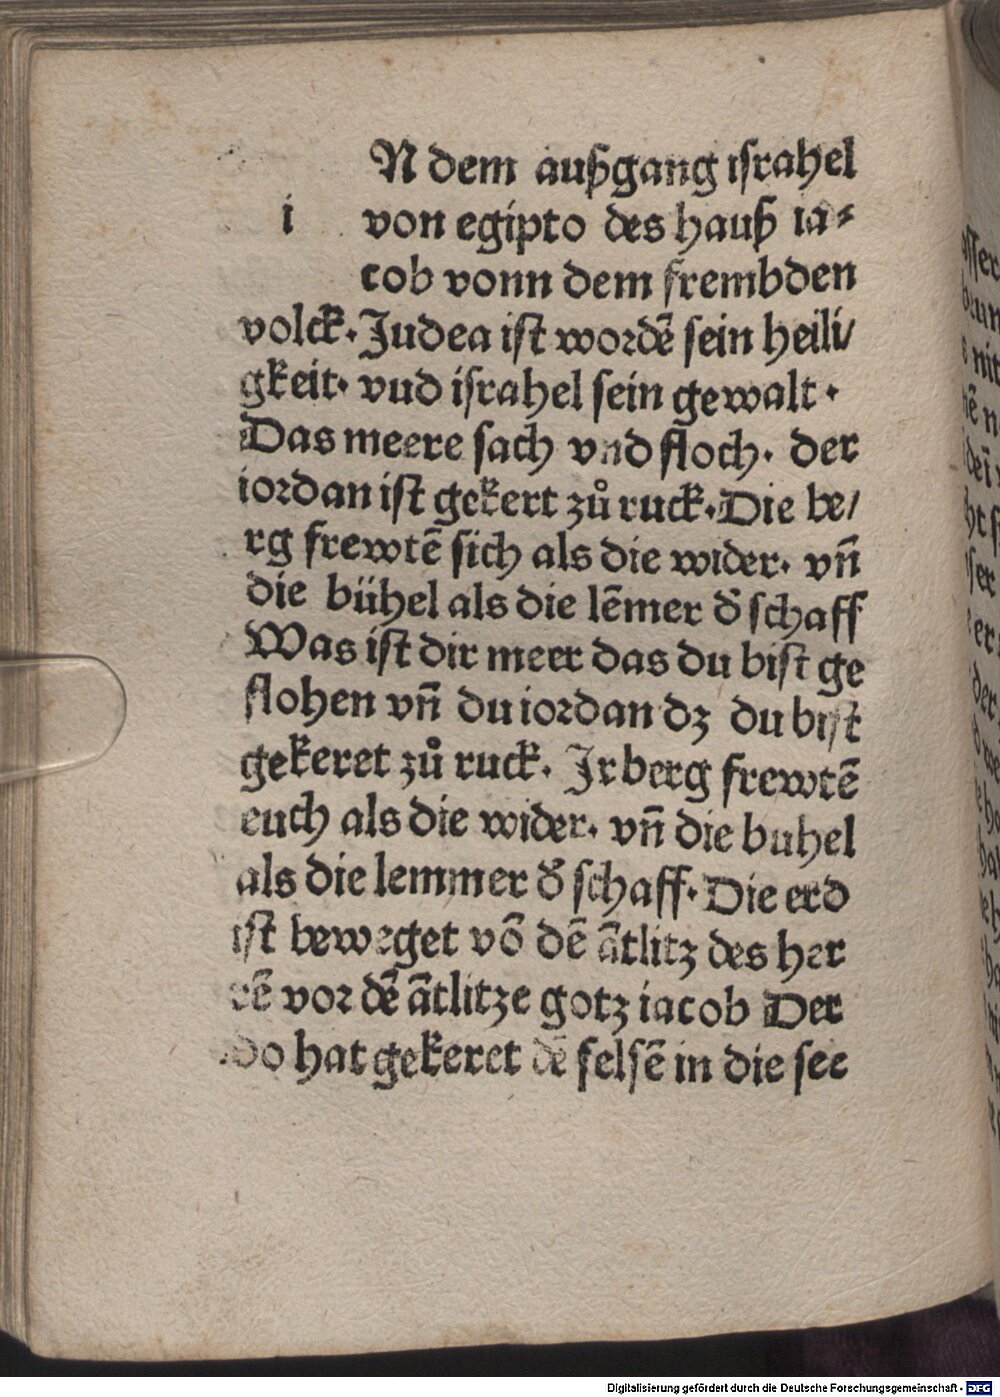 N dem außgang israhel
i von egipto des hauß ia⸗
cob vonn dem frembden
volck. Judea ist wordē sein heili/
gkeit. vud israhel sein gewalt.
Das meere sach vnd floch. der
iordan ist gekert zů ruck. Die be/
rg frewtē sich als die wider. vn̄
die bühel als die lēmer d̓ schaff
Was ist dir meer das du bist ge
flohen vn̄ du iordan dz du bist
gekeret zů ruck. Jr berg frewtē
euch als die wider. vn̄ die buhel
als die lemmer d̓ schaff. Die erd
ist beweget vō dē ātlitz des her
rē vor dē ātlitze gotz iacob Der
do hat gekeret dē felsē in die see
Digitalisierung gefördert durch die Deutsche Forschungsgemeinschaft - DFG